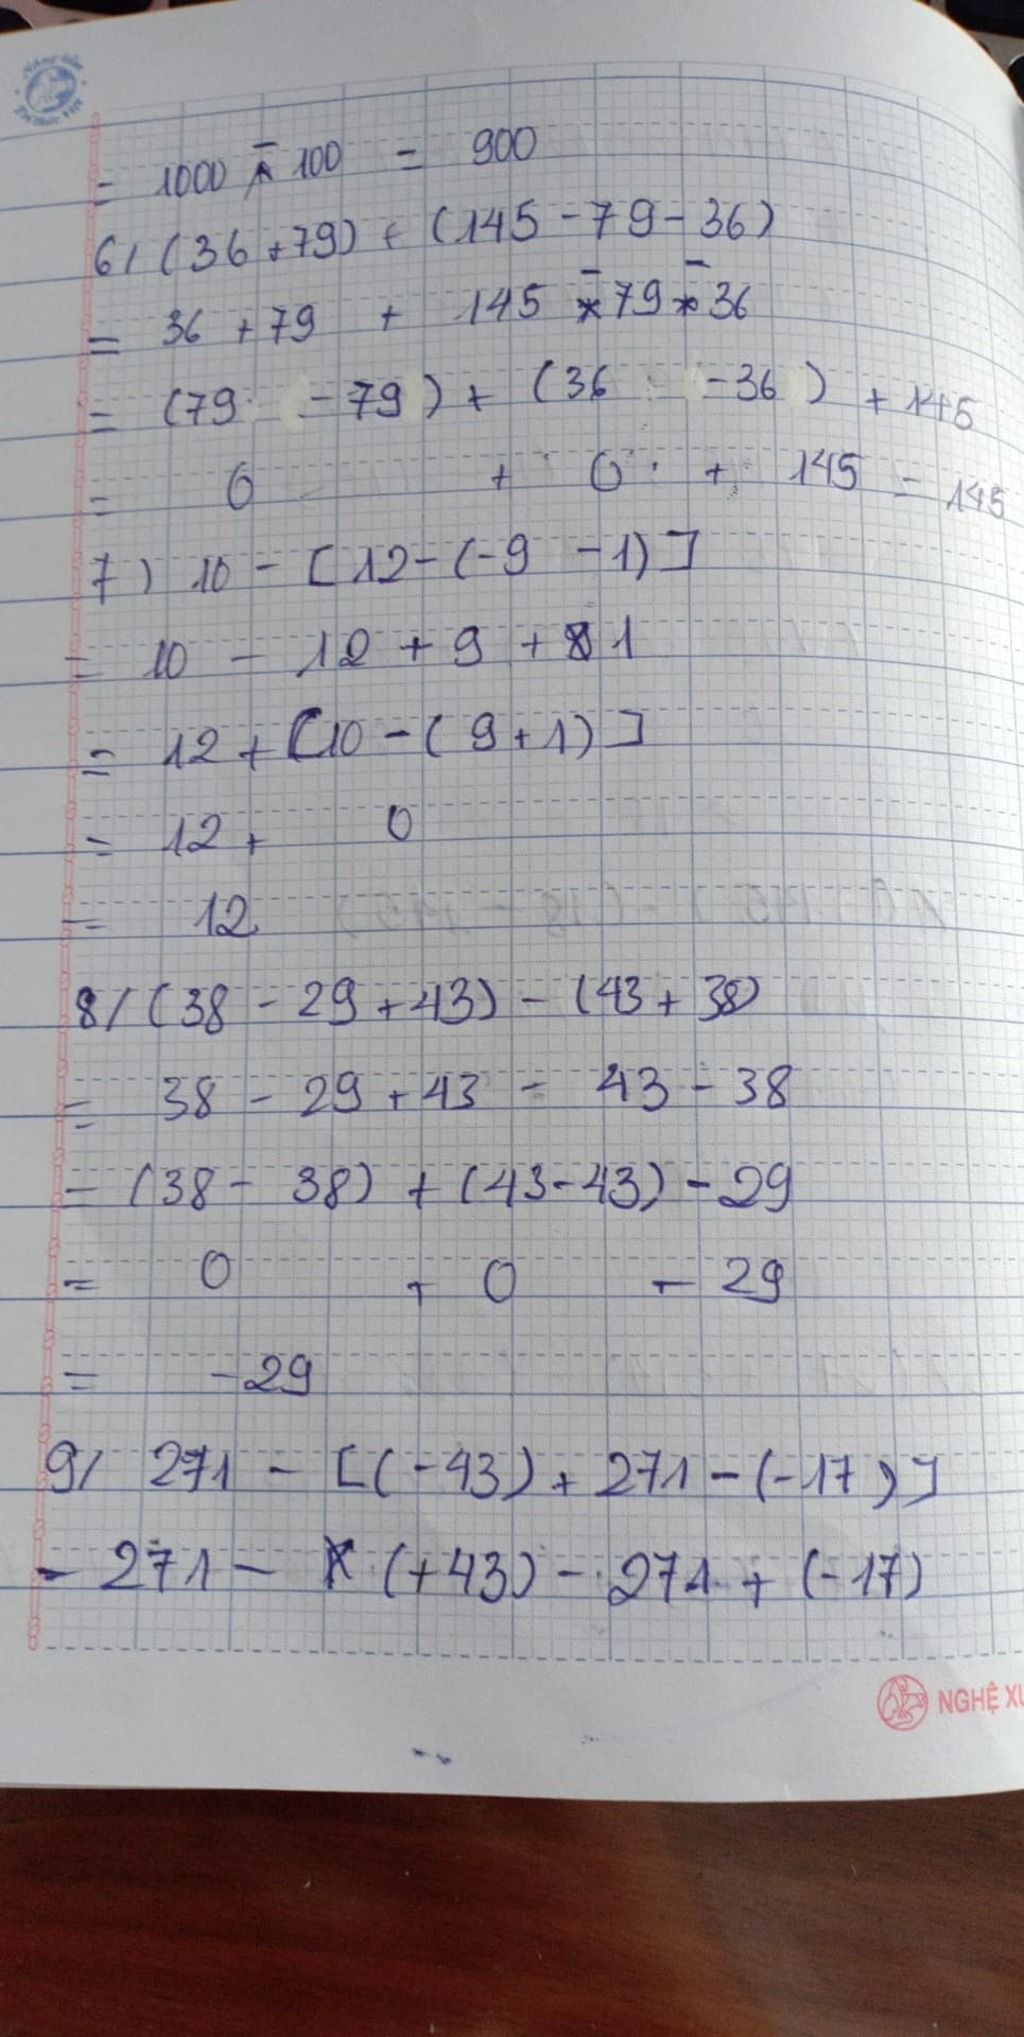 = 1000 - 100 = 900
6/ (36 + 79) + (145 - 79 - 36)
= 36 + 79 + 145 - 79 - 36
= (79 - 79) + (36 - 36) + 145
= 0 + 0 + 145 = 145
7) 10 - [12 - (-9 - 1)]
= 10 - 12 + 9 + 1
= 12 + [10 - (9 + 1)]
= 12 + 0
= 12
8/ (38 - 29 + 43) - (43 + 38)
= 38 - 29 + 43 - 43 - 38
= (38 - 38) + (43 - 43) - 29
= 0 + 0 - 29
= -29
9/ 271 - [(-43) + 271 - (-17)]
- 271 - (+43) - 271 + (-17)
NGHỆ